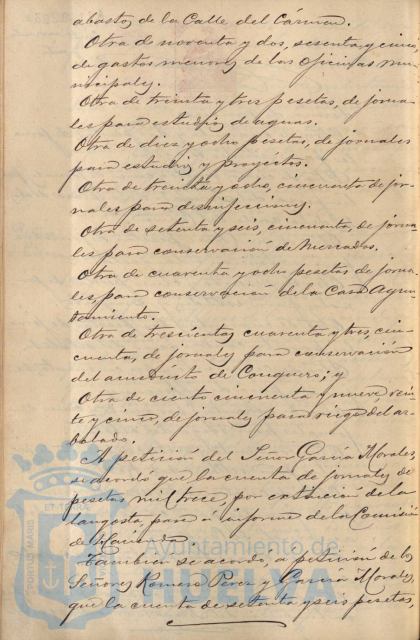 abastos de la Calle del Cármen.
Otra de noventa y dos, sesenta y cinco,
de gastos menores de las oficinas mu-
nicipales.
Otra de treinta y tres pesetas, de jorna-
les para estudios de aguas.
Otra de diez y ocho pesetas, de jornales
para estudios y proyectos.
Otra de treinta y ocho, cincuenta de jor-
nales para desinfecciones.
Otra de setenta y seis, cincuenta, de jorna-
les para conservación de Mercados.
Otra de cuarenta y ocho pesetas de jorna-
les, para conservación de la Casa Ayun-
tamiento.
Otra de trescientas cuarenta y tres, cin-
cuenta, de jornales para conservación
del acueducto de Conquero; y
Otra de ciento cincuenta y nueve vein-
te y cinco, de jornales para riego del ar-
bolado.
A petición del Señor García Morales,
se acordó que la cuenta de jornales de
pesetas mil trece, por extinción de la
langosta, pase á informe de la Comisión
de Hacienda.
Tambien se acordó, a petición de los
Señores Romero Perez y García Morales,
que la cuenta de setenta y seis pesetas
Ayuntamiento de
HUELVA
PORTUS MARIS